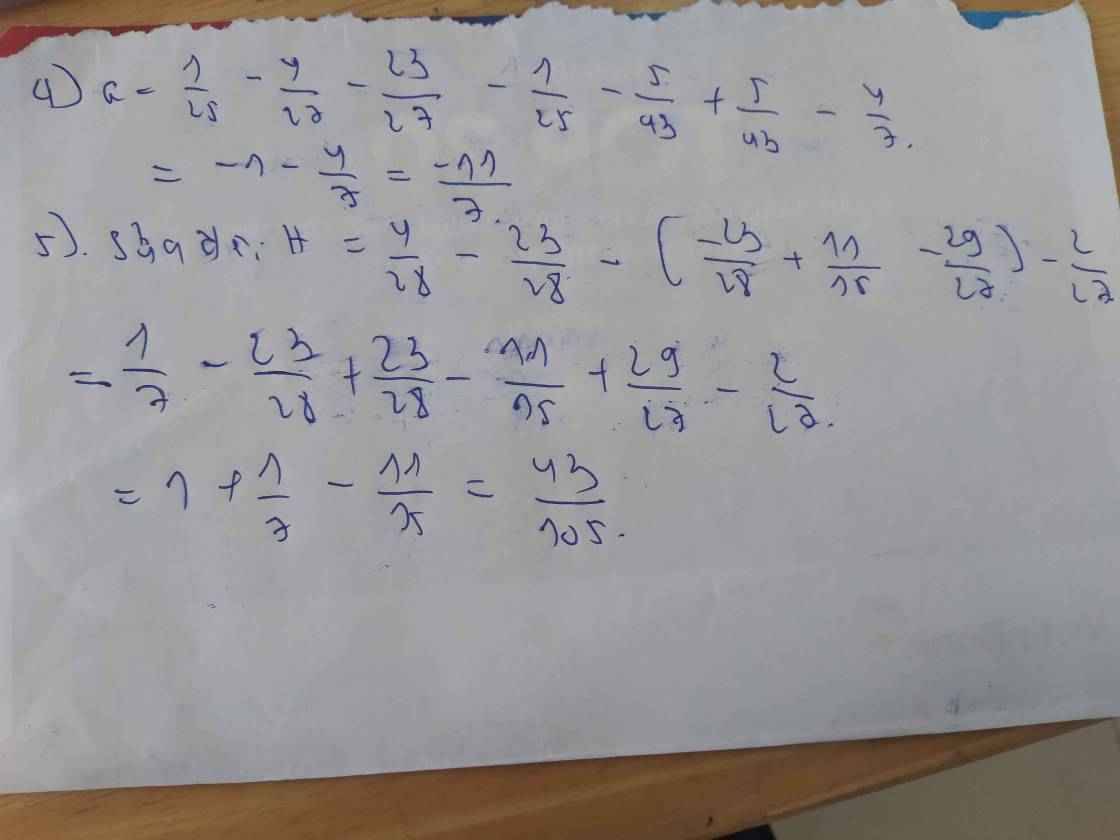 4) G = 1/25 - 4/27 - 23/27 - 1/25 - 5/43 + 5/43 - 4/7.
= -1 - 4/7 = -11/7.
5). H = 4/28 - 23/28 - (-23/28 + 11/15 - 29/27) - 2/27
= 1/7 - 23/28 + 23/28 - 11/15 + 29/27 - 2/27.
= 1 + 1/7 - 11/15 = 43/105.